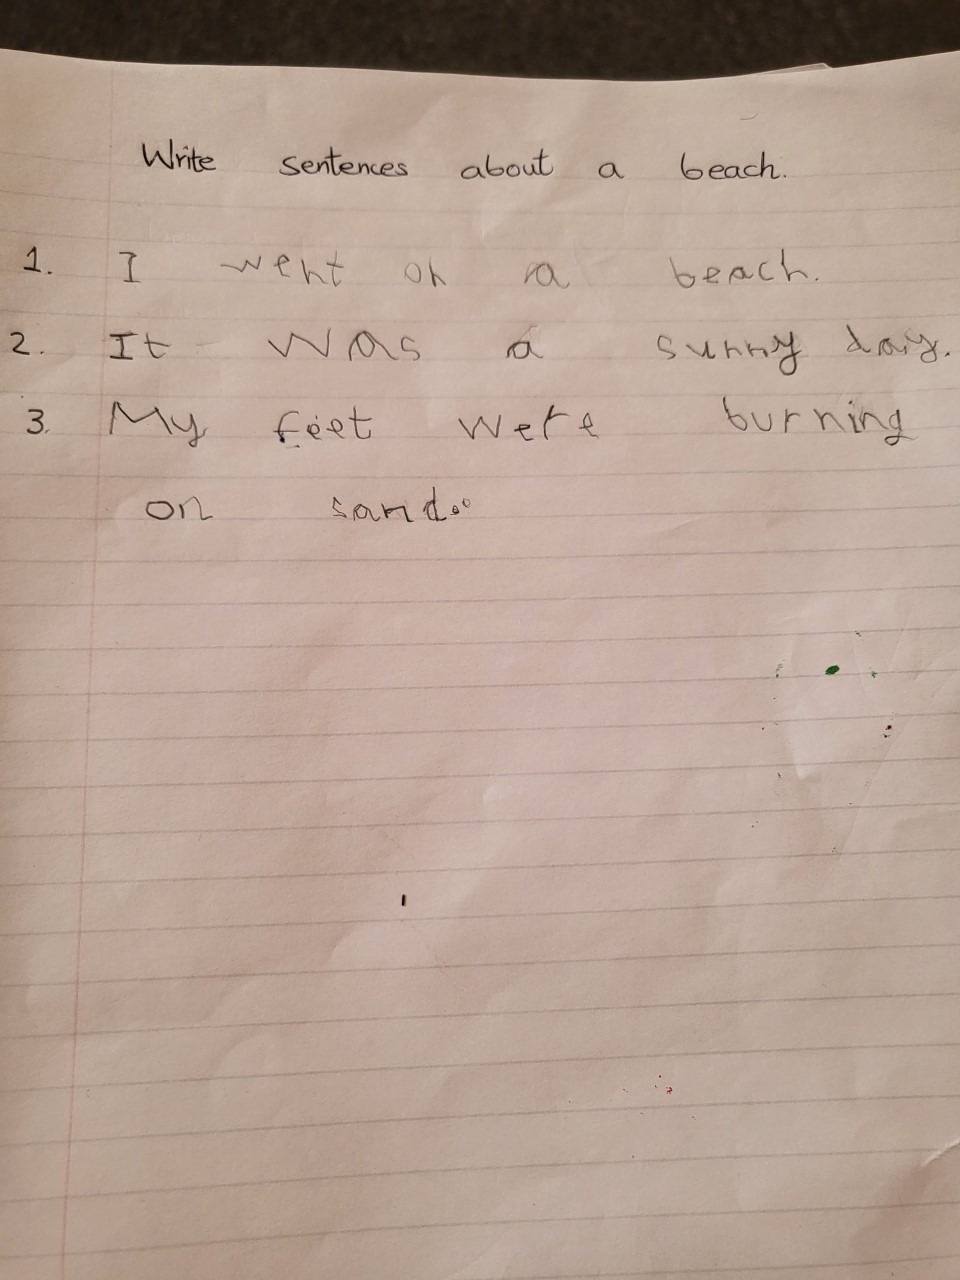 Write sentences about a beach.
1. I went on a beach.
2. It was a sunny day.
3. My feet were burning
on sand.